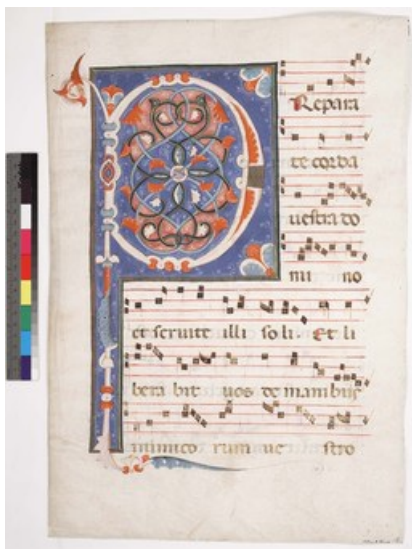 PRepara
te corda
uestra do
mi no
et seruite illi so li. Et li
bera bit uos de manibus
inimico rum ue stro